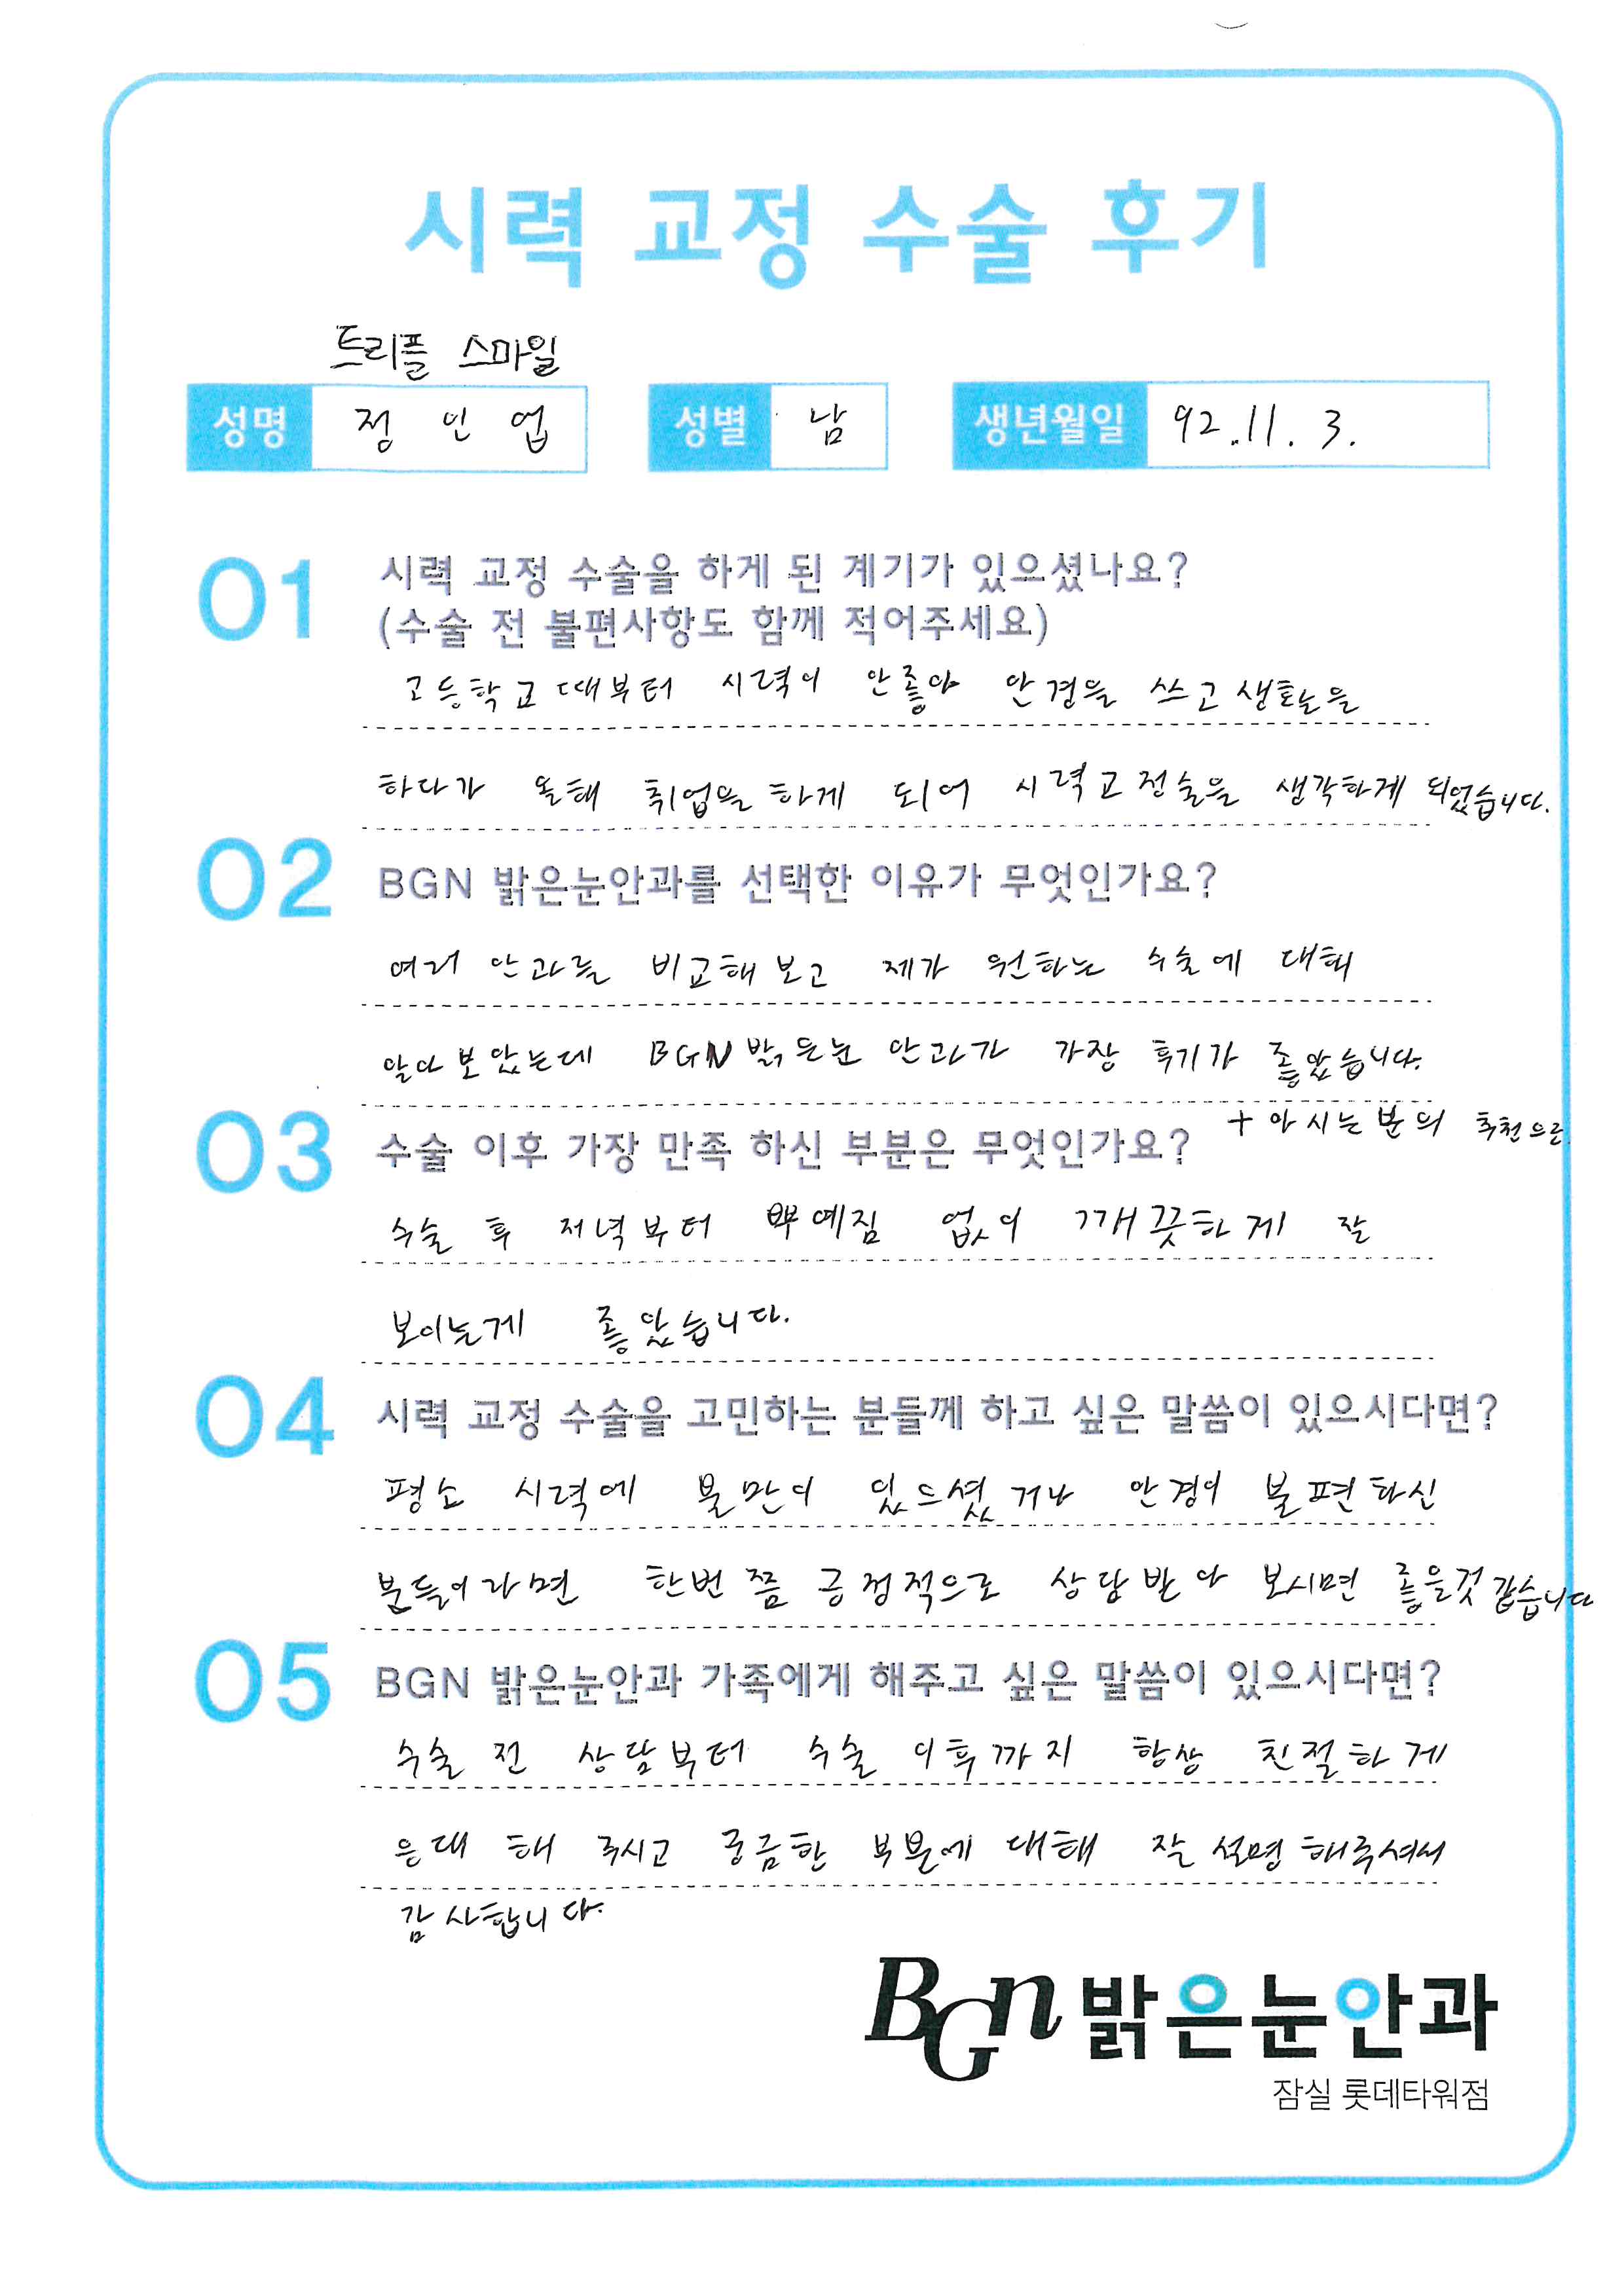 시력 교정 수술 후기
트리플 스마일
성명 정 인 업 성별 남 생년월일 92.11.3.
01 시력 교정 수술을 하게 된 계기가 있으셨나요?
(수술 전 불편사항도 함께 적어주세요)
고등학교때부터 시력이 안좋아 안경을 쓰고생활을
하다가 올해 취업을하게 되어 시력교정술을 생각하게 되었습니다.
02 BGN 밝은눈안과를 선택한 이유가 무엇인가요?
여러 안과를 비교해보고 제가 원하는 수술에 대해
알아보았는데 BGN밝은눈 안과가 가장 후기가 좋았습니다.
+ 아시는분의 추천으로
03 수술 이후 가장 만족 하신 부분은 무엇인가요?
수술 후 저녁부터 뿌예짐 없이 깨끗하게 잘
보이는게 좋았습니다.
04 시력 교정 수술을 고민하는 분들께 하고 싶은 말씀이 있으시다면?
평소 시력에 불만이 있으셨거나 안경이 불편하신
분들이라면 한번쯤 긍정적으로 상담받아 보시면 좋을것같습니다
05 BGN 밝은눈안과 가족에게 해주고 싶은 말씀이 있으시다면?
수술 전 상담부터 수술 이후까지 항상 친절하게
응대 해 주시고 궁금한 부분에 대해 잘 설명해주셔서
감사합니다.
BGn 밝은눈안과
잠실 롯데타워점